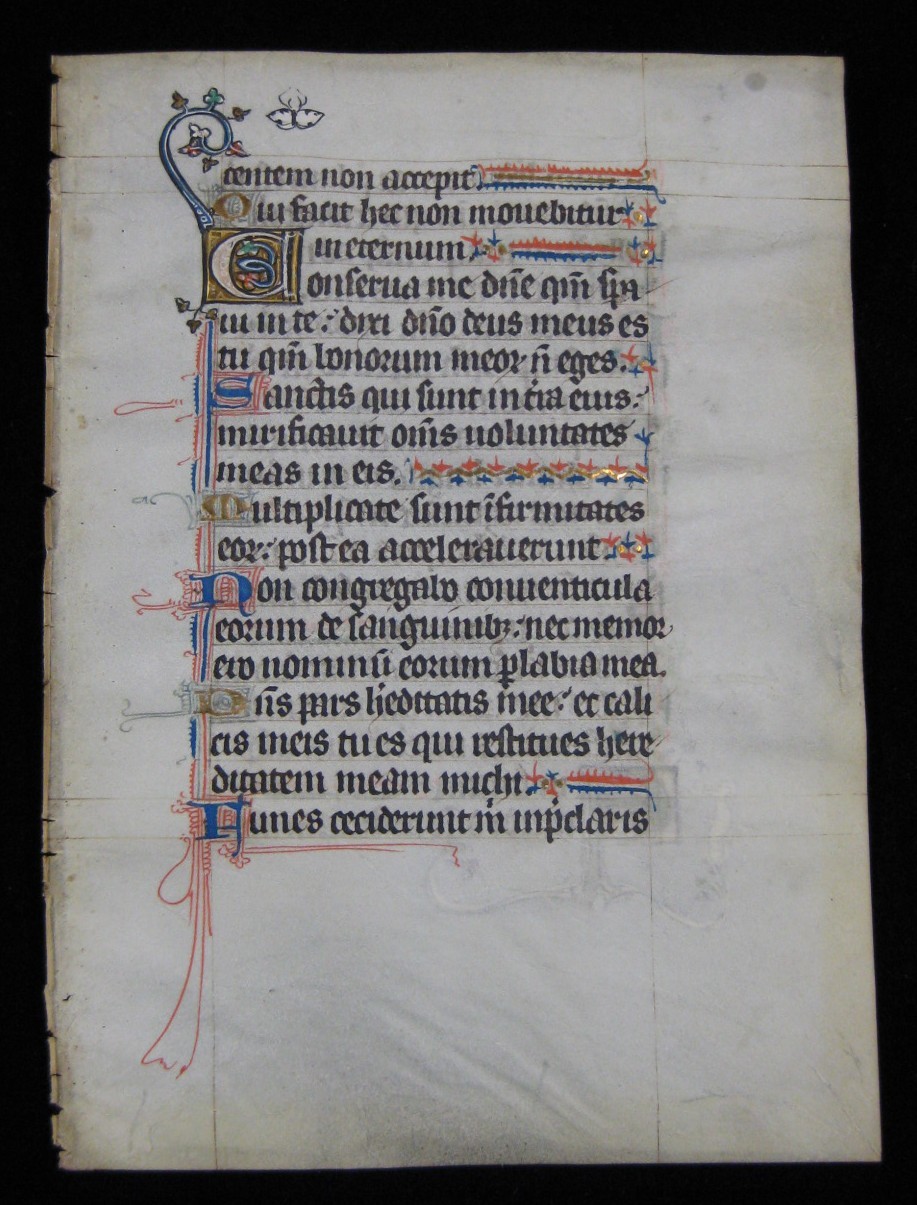 centem non accepit
Qui facit hec non mouebitur
in eternum
Conserua me dn̄e qm̄ spa
ui in te: dixi dn̄o deus meus es
tu qm̄ bonorum meoꝝ n̄ eges.
Sanctis qui sunt in t̄ra eius:
mirificauit om̄s uoluntates
meas in eis.
Multiplicate sunt īfirmitates
eoꝝ: post ea accelerauerunt
Non congregabo conuenticula
eorum de sanguinibꝫ: nec memor
ero nominū eorum ꝑ labia mea.
Dn̄s pars h̓editatis mee: et cali
cis mei tu es qui restitues here
ditatem meam michi
Funes ceciderunt m̓ in p̓claris